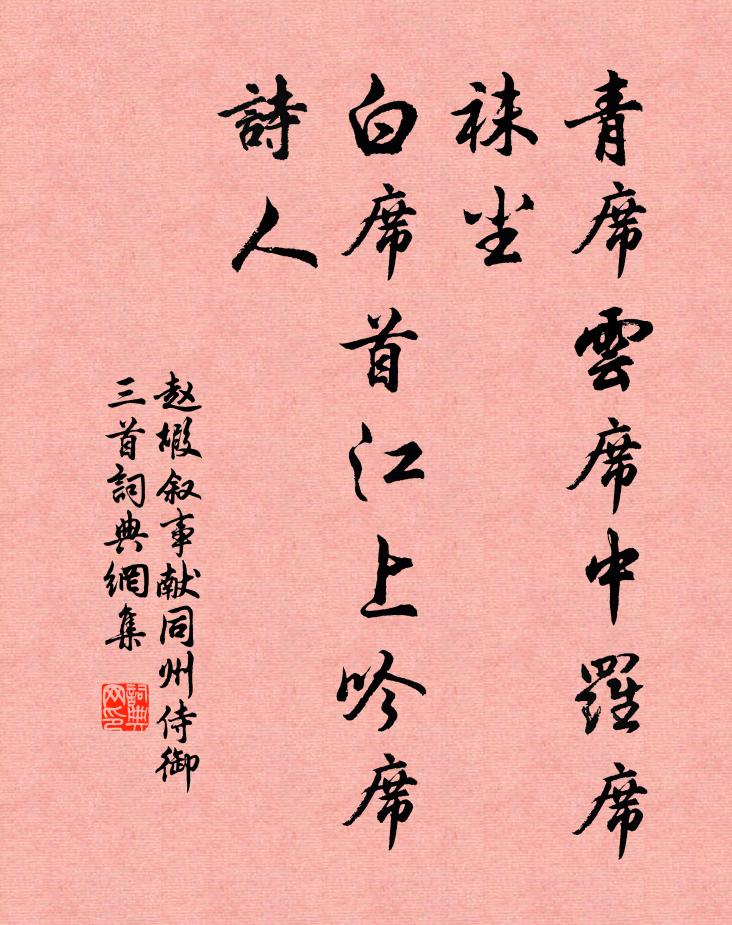 青席雲席中羅席
袜尘
白席首江上吟席
詩人
赵嘏叙事献同州侍御
三首詞典網集
詞典网印